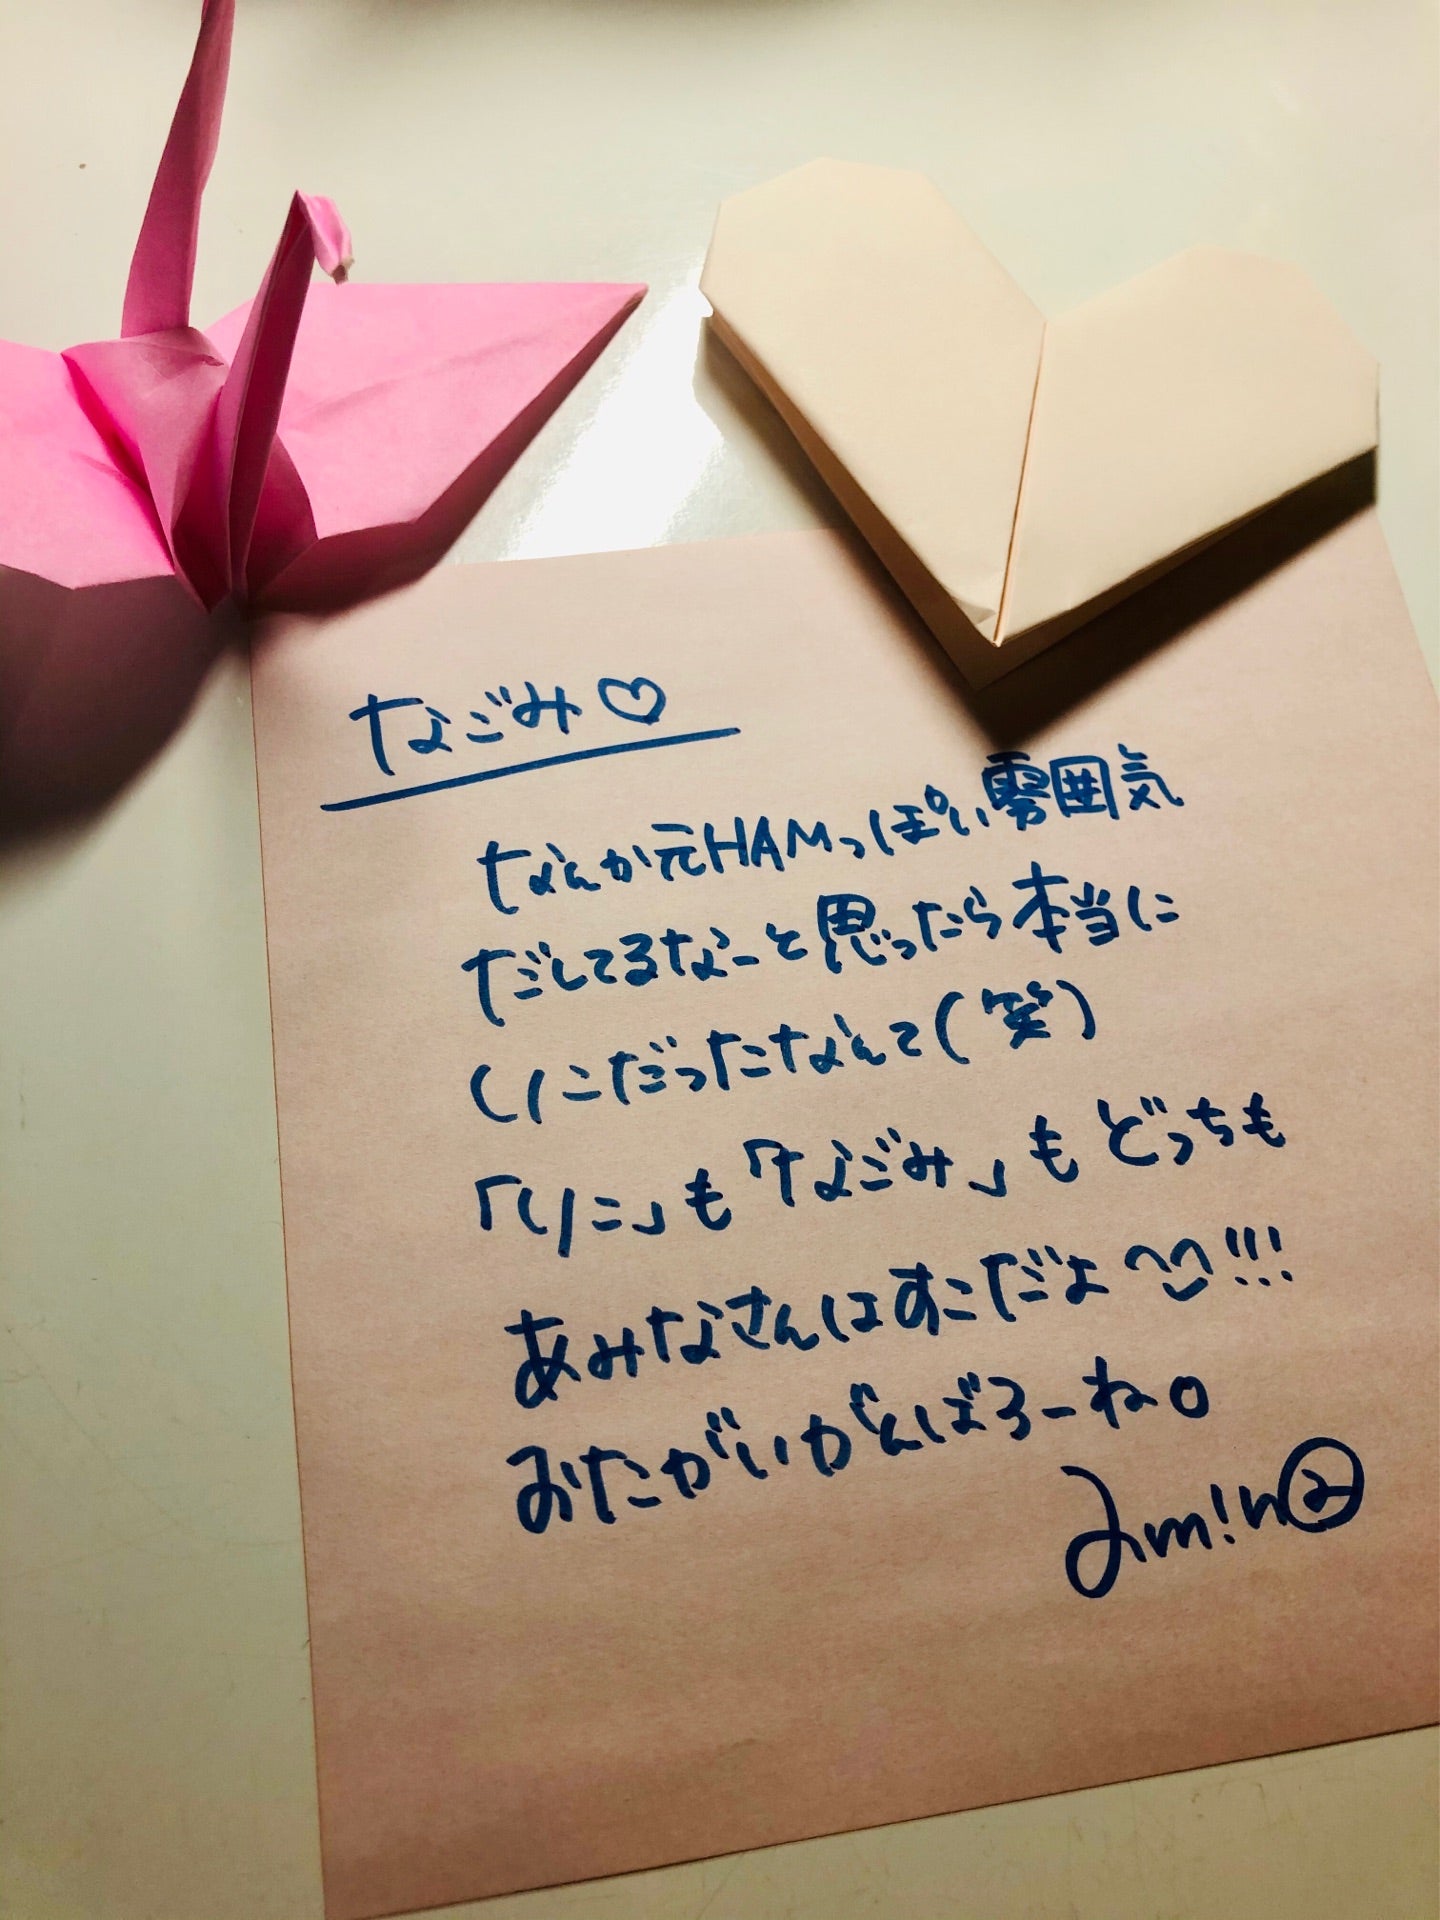 なごみ♡
なんか元HAMっぽい雰囲気
だしてるなーと思ったら本当に
りこだったなんて(笑)
「りこ」も「なごみ」もどっちも
あみなさんはすこだよ!!!
おたがいがんばろーね。
Am!n